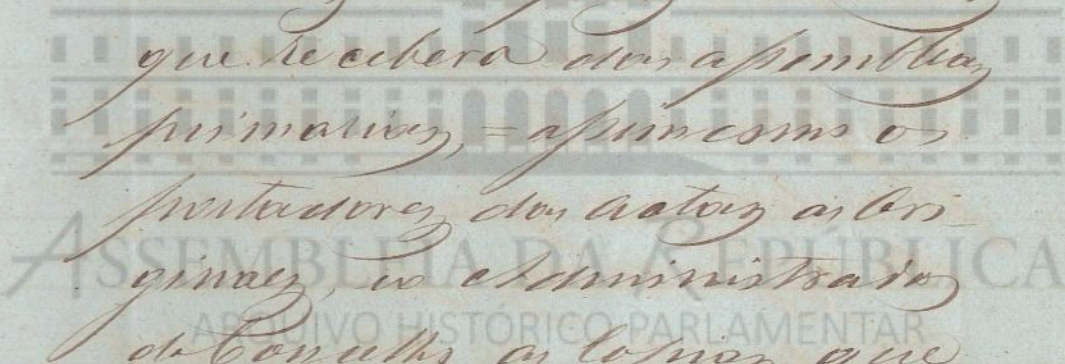 que recebera das assembleas
primarias, = assim como os
portadores das actas as Ori-
ginaes, e o Administrador
do Concelho as Copias que
ASSEMBLEIA DA REPÚBLICA
ARQUIVO HISTÓRICO PARLAMENTAR